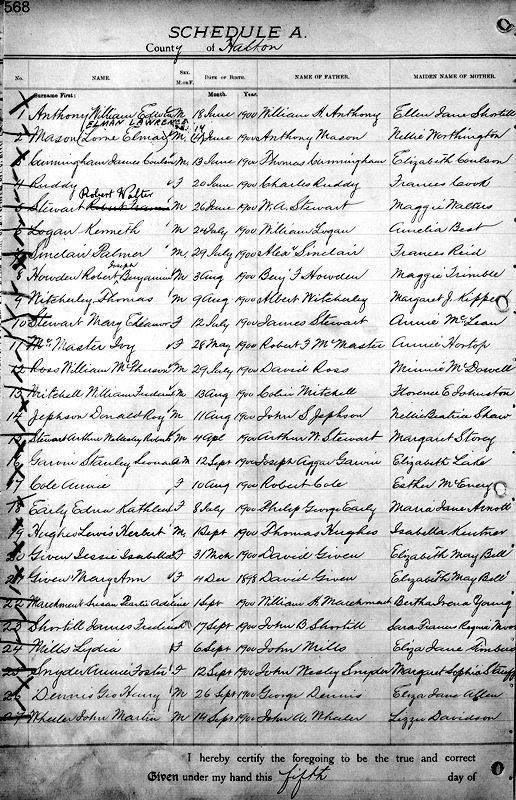 568
SCHEDULE A.
County of Halton
No. NAME. SEX. M. or F. DATE OF BIRTH. NAME OF FATHER. MAIDEN NAME OF MOTHER.
Surname First: Month. Year.
1 Anthony William Edwin M 18 June 1900 William H. Anthony Ellen Jane Shortill
ELMAN LAWRENCE
2 Mason Lorne Elman M June 1900 Anthony Mason Nellie Worthington
3 Cunningham James Coulson M 13 June 1900 Thomas Cunningham Elizabeth Coulson
4 Ruddy F 20 June 1900 Charles Ruddy Frances Cook
Robert Walter
5 Stewart M 26 June 1900 W. A. Stewart Maggie Walters
6 Logan Kenneth M 24 July 1900 William Logan Amelia Best
7 Sinclair Palmer M 29 July 1900 Alex Sinclair Frances Reid
Joseph
8 Howden Robert Benjamin M 3 Aug 1900 Benj F Howden Maggie Trimble
9 Witcherley Thomas M 9 Aug 1900 Albert Witcherley Margaret J.
10 Stewart Mary Eleanor F 12 July 1900 James Stewart Annie McLean
11 McMaster Ivy F 28 May 1900 Robert F McMaster Annie Hortop
12 Ross William McPherson M 29 July 1900 David Ross Minnie McDowell
13 Mitchell William Frederick M 13 Aug 1900 Colin Mitchell Florence E Johnston
14 Jephson Donald Roy M 11 Aug 1900 John S Jephson Nellie Beatrice Shaw
15 Stewart Arthur Wellesley Robert M 4 Apl 1900 Arthur W. Stewart Margaret Storey
16 Garvin Stanley Leonard M 12 Sept 1900 Joseph Aggar Garvin Elizabeth Lake
17 Cole Annie F 10 Aug 1900 Robert Cole Esther McEnery
18 Early Edna Kathleen F 8 July 1900 Philip George Early Maria Jane Arnott
19 Hughes Lewis Herbert M 1 Sept 1900 Thomas Hughes Isabella Kentner
20 Given Jessie Isabella F 31 Mch 1900 David Given Elizabeth May Bell
21 Given Mary Ann F 4 Dec 1898 David Given Elizabeth May Bell
22 Marchment Susan Pearl Adeline 1 Sept 1900 William H. Marchment Bertha Irena Young
23 Shortill James Frederick 17 Sept 1900 John B. Shortill Sara Frances Regina Moore
24 Mills Lydia F 6 Sept 1900 John Mills Eliza Jane
25 Snyder Annie Foster F 12 Sept 1900 John Wesley Snyder Margaret Sophia
26 Dennis Geo Henry M 26 Sept 1900 George Dennis Eliza Jane Allen
27 Wheeler John Martin M 14 Sept 1900 John A. Wheeler Lizzie Davidson
I hereby certify the foregoing to be the true and correct
Given under my hand this fifth day of